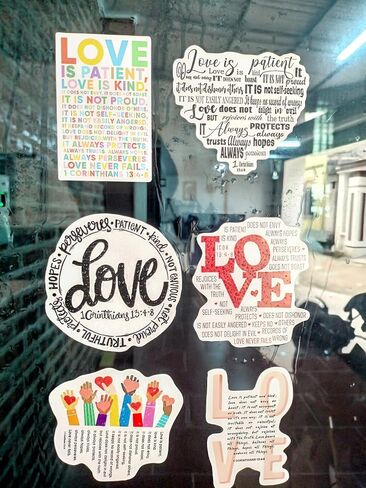 LOVE
IS PATIENT,
LOVE IS KIND.
IT DOES NOT ENVY, IT DOES NOT BOAST,
IT IS NOT PROUD.
IT DOES NOT DISHONOR OTHERS,
IT IS NOT SELF-SEEKING,
IT IS NOT EASILY ANGERED,
IT KEEPS NO RECORD OF WRONGS.
LOVE DOES NOT DELIGHT IN EVIL
BUT REJOICES WITH THE TRUTH.
IT ALWAYS PROTECTS,
ALWAYS TRUSTS, ALWAYS HOPES,
ALWAYS PERSEVERES.
LOVE NEVER FAILS.
1 CORINTHIANS 13:4-8
Love is patient,
Love is kind It
does not envy IT DOES NOT BOAST IT IS NOT PROUD
it does not dishonor others IT IS not self-seeking
IT IS NOT EASILY ANGERED It keeps no record of wrongs
Love does not delight in evil
BUT rejoices with the truth
IT Always PROTECTS always
trusts Always hopes
ALWAYS
13:4-8
HOPES perseveres PATIENT kind NOT ENVIOUS not Proud TRUTHFUL Protects
love
1 Corinthians 13:4-8
LOVE
IS PATIENT
IS KIND
DOES NOT ENVY
ALWAYS HOPES
ALWAYS
PERSEVERES
ALWAYS TRUSTS
DOES NOT BOAST
REJOICES
WITH THE
TRUTH
NOT
SELF-SEEKING
ALWAYS
PROTECTS
DOES NOT DISHONOR
OTHERS
IS NOT EASILY ANGERED
KEEPS NO
DOES NOT DELIGHT IN EVIL
RECORD OF
LOVE NEVER FAILS
WRONGS
LOVE
Love is patient and kind; love
does not envy or
boast; it is not arrogant
or rude. It does not
insist on its own
way; it is not
irritable or
resentful; it
does not rejoice at
wrongdoing, but rejoices
with the truth. Love bears all
things, believes all
things, hopes all things,
endures all things.
1 CORINTHIANS 13:4-8